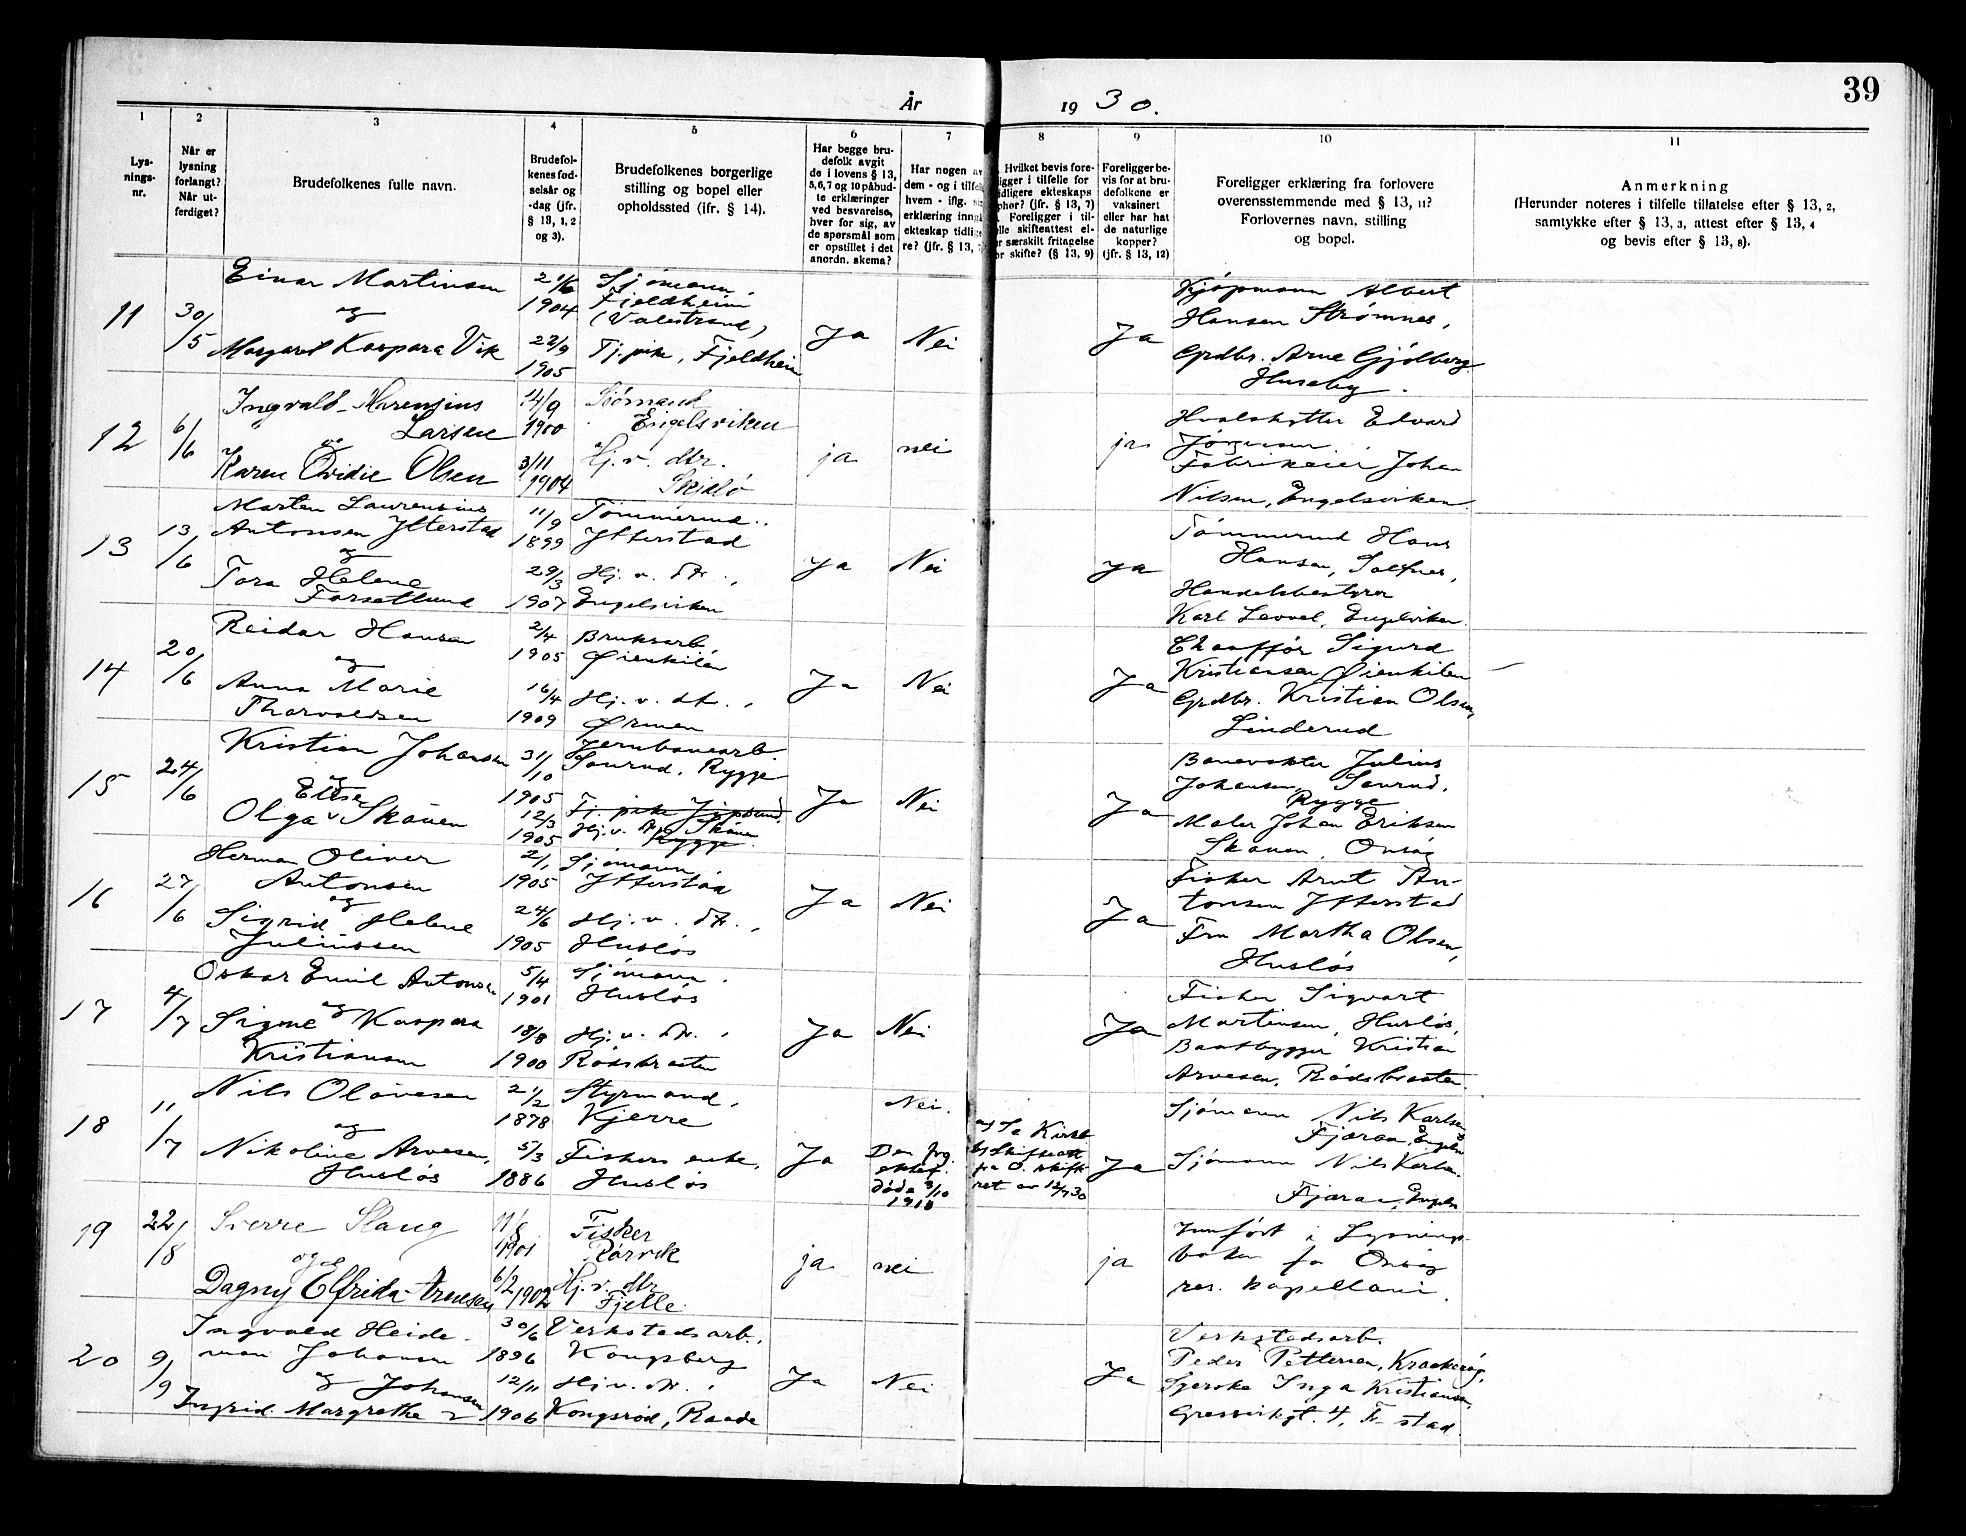 39
År 1930.
1 2 3 4 5 6 7 8 9 10 11
Lysningsnr.
Når er lysning forlangt? Når utferdiget?
Brudefolkenes fulle navn.
Brudefolkenes fødselsår og -dag (jfr. § 13, 1, 2 og 3).
Brudefolkenes borgerlige stilling og bopel eller opholdssted (ifr. § 14).
Har begge brudefolk avgit de i lovens § 13, 5,6,7 og 10 påbudte erklæringer ved besvarelse, hver for sig, av de spørsmål som er opstillet i det anordn. skema?
Har nogen av dem - og i tilfelle hvem - iflg.
erklæring inngått ekteskap tidligere? (jfr. § 13,
Hvilket bevis foreligger i tilfelle for tidligere ekteskaps ophør? (jfr. § 13, 7) Foreligger i tilfelle skifteattest eller særskilt fritagelse for skifte? (§ 13, 9)
Foreligger bevis for at brudefolkene er vaksinert eller har hat de naturlige kopper? (jfr. § 13, 12)
Foreligger erklæring fra forlovere overensstemmende med § 13, 11? Forlovernes navn, stilling og bopel.
Anmerkning
(Herunder noteres i tilfelle tillatelse efter § 13, 2, samtykke efter § 13, 3, attest efter § 13, 4 og bevis efter § 13, 8).
11 30/5
Einar Martinsen
og
Margaret Kaspara Vik
1904
22/9
1905
Sjømann,
Fjeldheim
(Valestrand)
Tj.pike, Fjeldheim
Ja Nei Ja
Kjøpmann Albert
Hansen Strømnes,
Grdbr. Arne Gjølberg
Huseby.
12 6/6
Ingvald Marensius
Larsen
og
Karen Ovidie Olsen
14/9
1900
3/11
1904
Sjømand
Engelsviken
Hj.v. dtr.
ja nei ja
Hvalskytter Edvard
Fabrikeier Johan
Nilsen, Engelsviken
13 13/6
Marten Laurensius
Antonsen Ytterstad
og
Tora Helene
Forsetlund
11/9
1899
29/3
1907
Tømmermd.
Ytterstad
Hj. v. dtr.,
Engelsviken
Ja Nei Ja
Tømmermd Hans
Hansen,
Handelsbestyrer
Karl Levvel, Engelviken.
14 20/6
Reidar Hansen
og
Anna Marie
Thorvaldsen
2/4
1905
16/4
1909
Bruksarb.
Øienkilen
Hj. v. dtr.,
Ørmen
Ja Nei Ja
Chaufför Sigurd
Kristiansen Øienkilen
Grdbr. Kristian Olsen,
Linderud
15 24/6
Kristian Johansen
og
Elise
Olga Skåuen
31/10
1905
12/3
1905
Jernbanearb.
Saurud, Rygge
Tj. pike
Hj. v. dtr. Skåuen
Rygge
Ja Nei Ja
Banevokter Julius
Johansen, Saurud,
Rygge
Maler Johan Eriksen
Skauen, Onsøy
16 27/6
Herman Oliver
Antonsen
og
Sigrid Helene
Juliussen
2/1
1905
24/6
1905
Sjømann,
Ytterstad
Hj. v. dtr.,
Husløs
Ja Nei Ja
Fisker Arnt An-
tonsen Ytterstad
Fru Martha Olsen,
Husløs
17 4/7
Oskar Emil Antonsen
og
Signe Kaspara
Kristiansen
5/4
1901
18/8
1900
Sjømann,
Husløs
Hj. v. dtr.,
Rødsbråten
Ja Nei Ja
Fisker Sigvart
Martinsen, Husløs,
Baatbygger Kristian
Arvesen, Rødsbraaten.
18 11/7
Nils Olavesen
og
Nikoline Arvesen,
Husløs
1878
5/3
1886
Styrmand,
Kjerre
Fiskers enke,
Husløs
Ja
Nei.
Den frg.
ektef.
døde 3/10
1918
Ja
Sjømann Nils Karlsen
Fjæraa, Engelsv.
Sjømann Nils Karlsen
Fjæraa, Engelsv.
19 22/8
Sverre Slang
og
Dagny Elfrida Arnesen
11/8
1901
6/2 1902
Fisker
Rørvik
Hj. v. dtr
Fjelle
ja nei ja
Innført i Lysnings-
boken for Onsøy
res. kapellani.
20 9/9
Ingvald Heide-
man Johansen
og
Ingrid Margrethe Johansen
30/6
1896
12/11
1906
Verkstedsarb.,
Kongsberg
Hj. v. dtr.,
Kongsrød, Raade
Ja Nei Ja
Verkstedsarb.
Peder Pettersen, Kraakerøy,
Inga Kristiansen,
Gressvikgt. 4, F-stad.